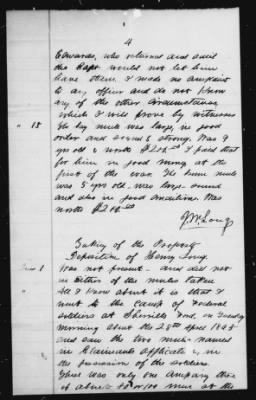 4
Edwards, who returned and said
the Capt would not let him
have them. I made no complaint
to any officer and do not know
any of the other circumstances
which I will prove by witnesses
" 15 The big mule was large, in good
order and sound & strong. Was 9
yrs old & worth I paid that
for him in good money at the
first of the war. The mare mule
was 5 yrs old, was large sound
and also in good condition. Was
worth
J. M. Long
Taking of the Property
Deposition of Henry Long.
Ques 1 Was not present. and did not
see either of the mules taken
All I know about it is that I
went to the camp of Federal
soldiers at Sherrills Ford, on Tuesday
morning about the 25th April 1865
and saw the two mules named
in Claimants application, in
the possession of the soldiers.
There was only one company there
of about or 100 men at the